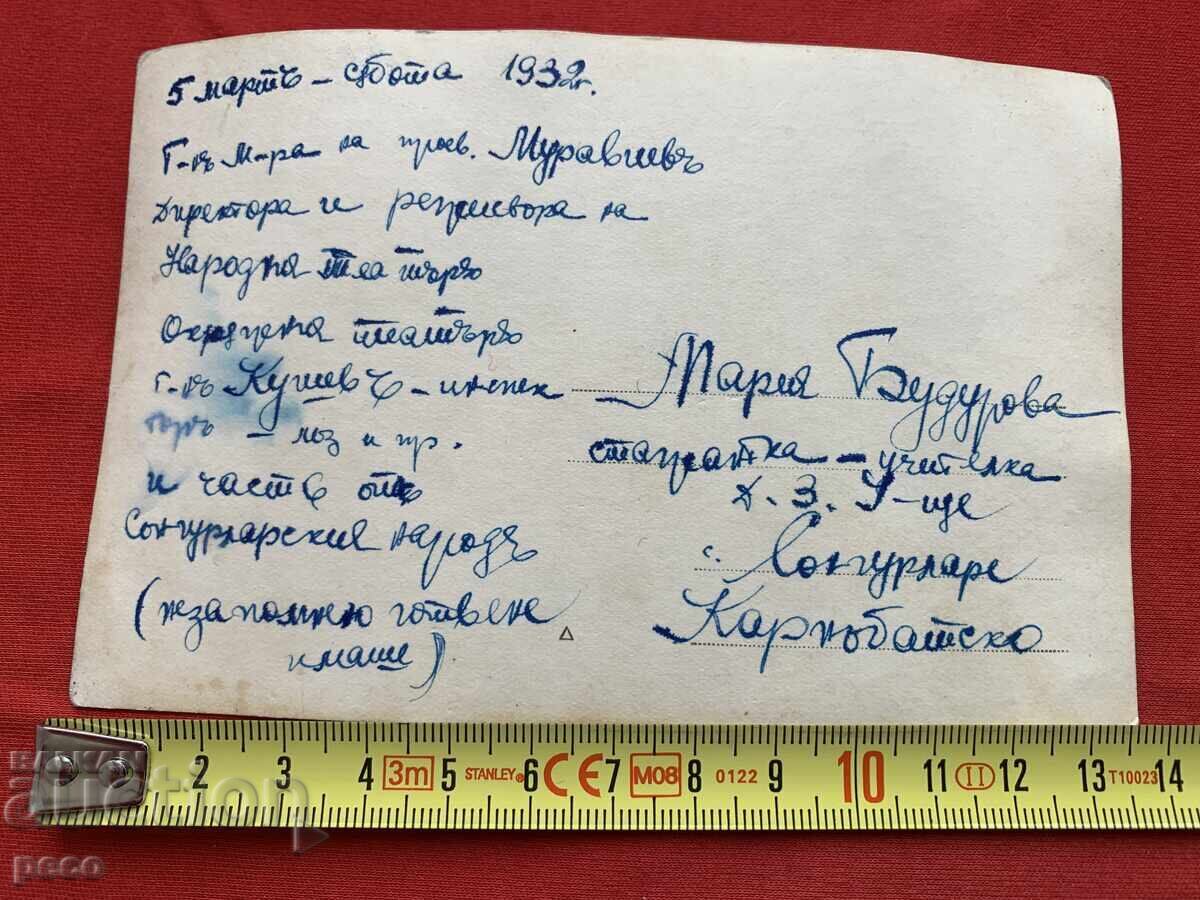 5 мартъ – събота 1932 г.
Г-нъ М-ра на просв. Муравиевъ
Директора и режисьора на
Народния театъръ
театъръ
г-нъ Кушевъ – инспек
торъ – лоз и пр.
и часть отъ
Сонгурларския народъ
(незапомнено готвене
имаше)
Мария Будурова
стажантка – учителка
Д. З. У-ще
с. Сонгурларе
Карнобатско
BALKAN
auction
peco
1 2 3 4 3m 5 STANLEY® 6 CE 7 M08 8 0122 9 10 11 II 12 13 T10023 14